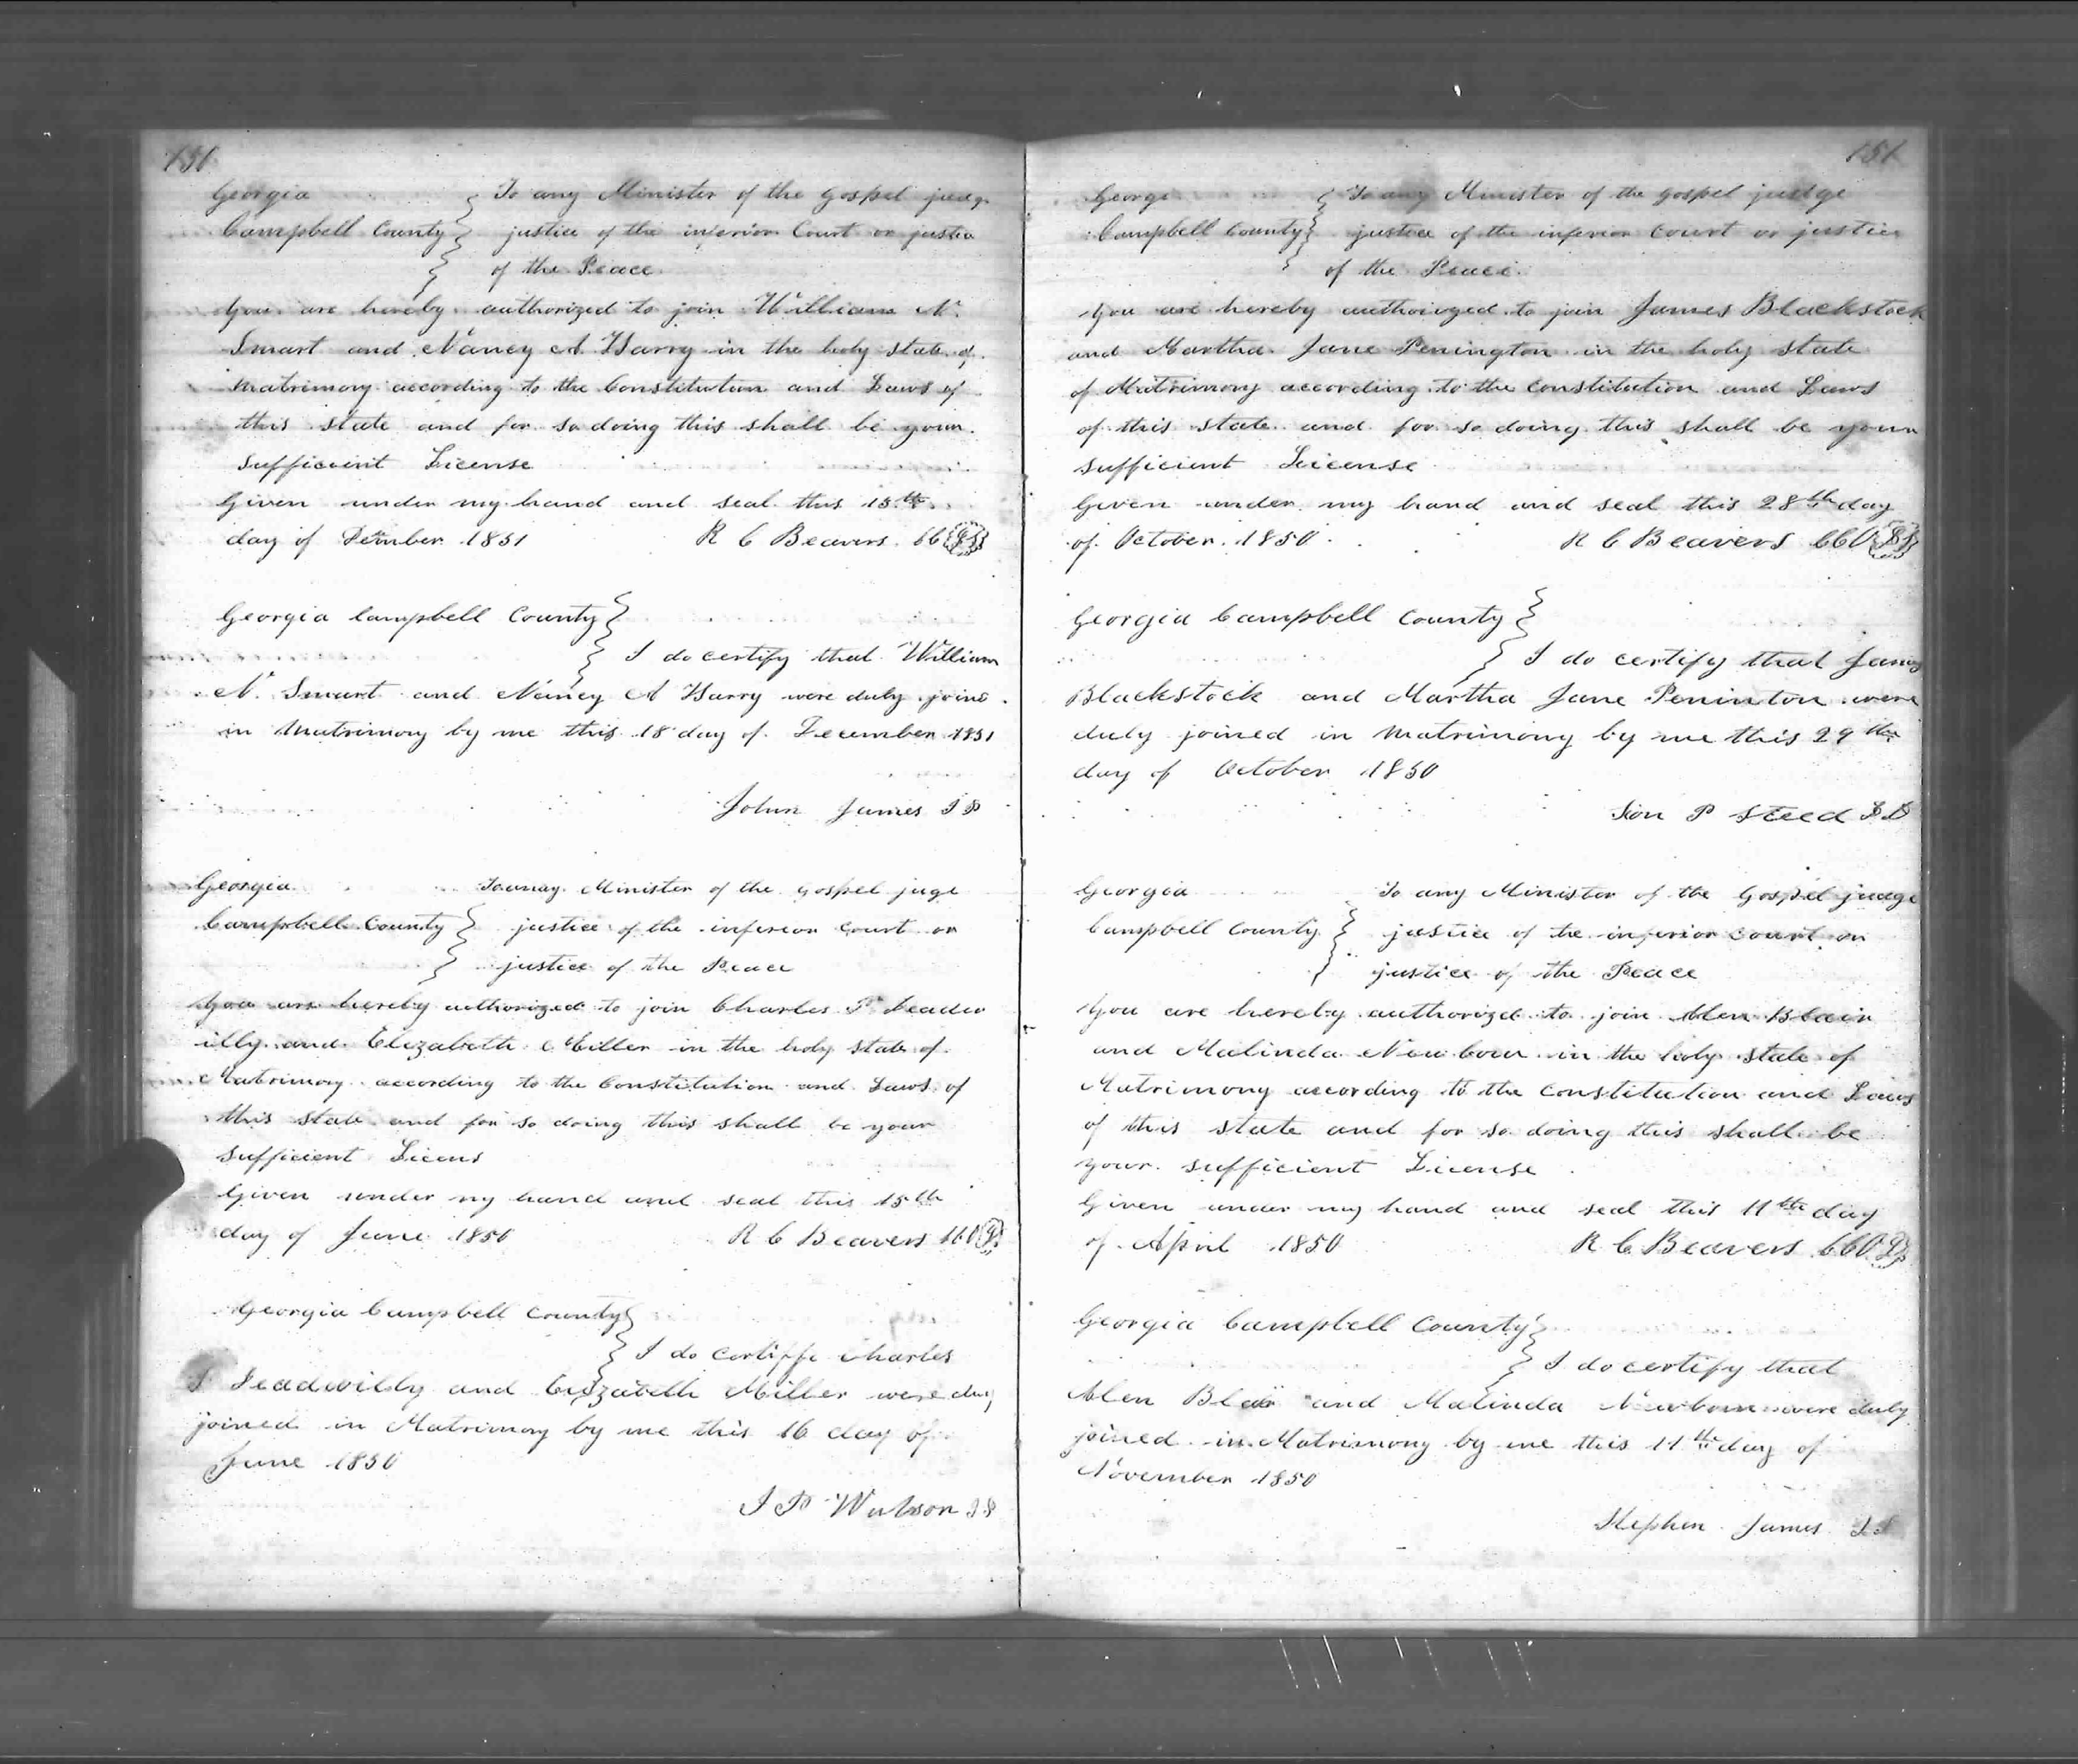 151
Georgia
Campbell County
To any Minister of the gospel judg
justice of the inferior Court or justice
of the Peace
You are hereby authorized to join William N.
Smart and Nancy A Harry in the holy state of
matrimony according to the Constitution and Laws of
this state and for so doing this shall be your
sufficient License
Given under my hand and seal this 15th
day of December 1851 R C Beavers
Georgia Campbell County
I do certify that William
N. Smart and Nancy A Harry were duly joind
in Matrimony by me this 18 day of December 1851
John James J P
Georgia
Campbell County
To any Minister of the gospel juge
justice of the inferior Court or
justice of the Peace
You are hereby authorized to join Charles P Leadw
illy and Elizabeth Miller in the holy state of
Matrimony according to the Constitution and Laws of
this state and for so doing this shall be your
sufficient Licens
Given under my hand and seal this 15th
day of June 1850 R C Beavers
Georgia Campbell County
I do certiffe Charles
Leadwilly and Elizabeth Miller were duly
joined in Matrimony by me this 16 day of
June 1850
J P Watson J P
151
Georgi
Campbell County
To any Minister of the gospel judge
justice of the inferior Court or justice
of the Peace
You are hereby authorized to join James Blackstock
and Martha Jane Penington in the holy state
of Matrimony according to the Constitution and Laws
of this state and for so doing this shall be your
sufficient License
Given under my hand and seal this 28th day
of October 1850 R C Beavers CCO LS
Georgia Campbell County
I do certify that James
Blackstock and Martha Jane Peninton were
duly joined in Matrimony by me this 29th
day of October 1850
Sion P Steed
Georgia
Campbell County
To any Minister of the Gospel judge
justice of the inferior court or
justice of the Peace
You are hereby authorized to join Alen Blair
and Malinda Newborn in the holy state of
Matrimony according to the Constitution and Laws
of this state and for so doing this shall be
your sufficient License
Given under my hand and seal this 11th day
of April 1850 R C Beavers CCO
Georgia Campbell County
I do certify that
Alen Blair and Malinda Newborn were duly
joined in Matrimony by me this 11th day of
November 1850
Stephen James